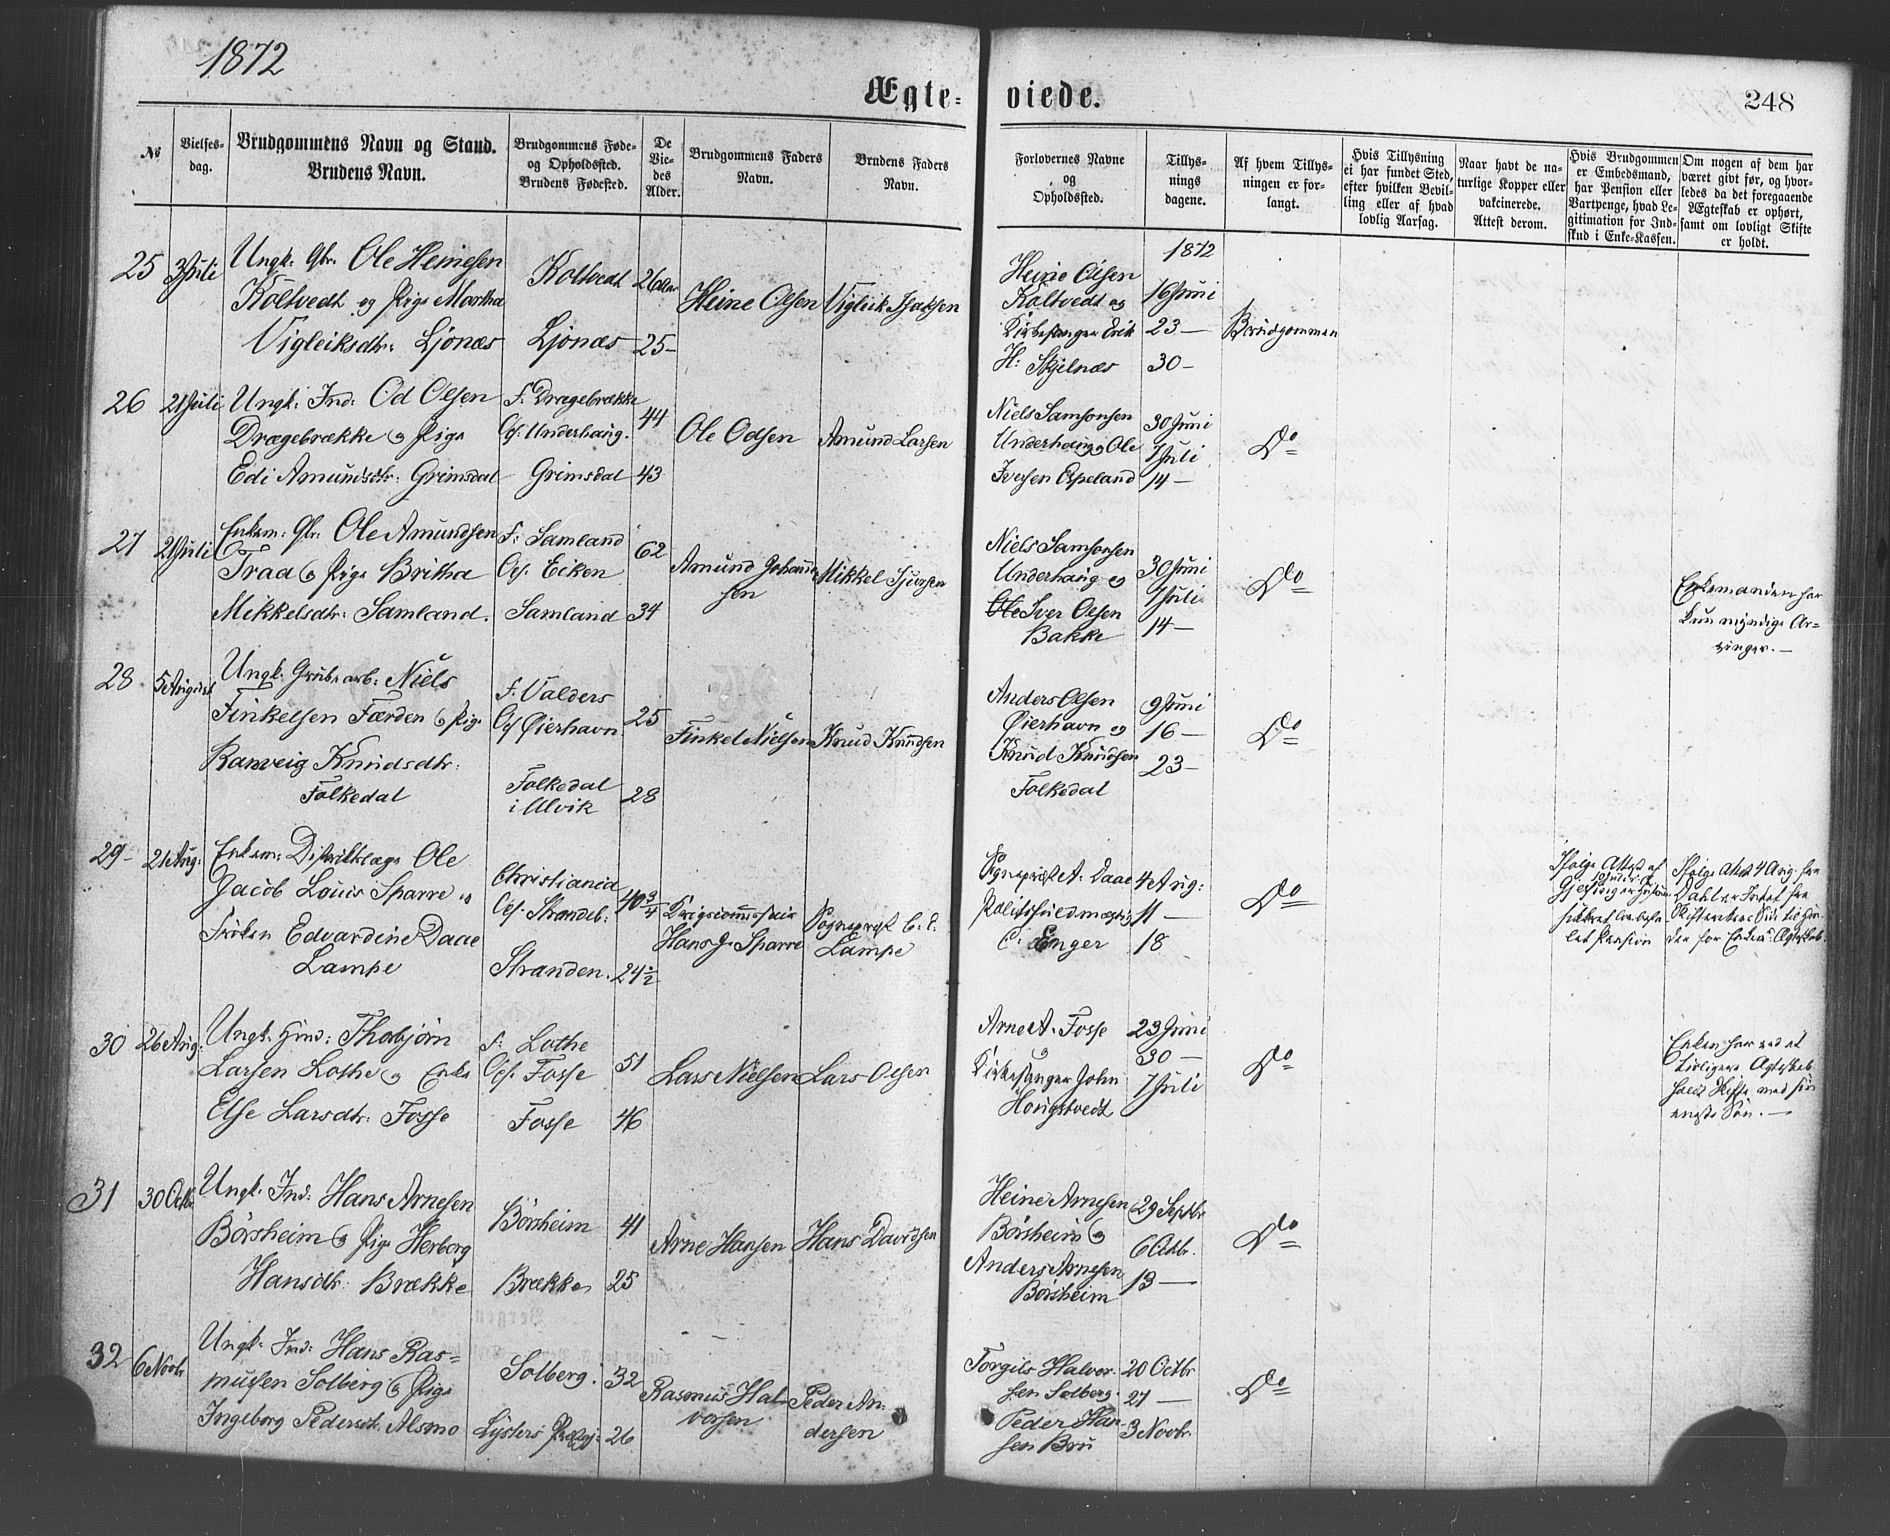 1872
Ægte-
viede.
248
№
Vielses-
dag.
Brudgommens Navn og Stand.
Brudens Navn.
Brudgommens Føde-
og Opholdssted.
Brudens Fødested.
De
Vie-
des
Alder.
Brudgommens Faders
Navn.
Brudens Faders
Navn.
Forlovernes Navne
og
Opholdssted.
Tillys-
nings
dagene.
Af hvem Tillys-
ningen er for-
langt.
Hvis Tillysning
ei har fundet Sted,
efter hvilken Bevil-
ling eller af hvad
lovlig Aarsag.
Naar havt de na-
turlige Kopper eller
vakcinerede.
Attest derom.
Hvis Brudgommen
er Embedsmand,
har Pension eller
Vartpenge, hvad Le-
gitimation for Ind-
skud i Enke-Kassen.
Om nogen af dem har
været givt før, og hvor-
ledes da det foregaaende
Ægteskab er ophørt,
samt om lovligt Skifte
er holdt.
25
3 Juli
Ungk: Gbr. Ole Heinesen
Koltvedt og Pige Martha
Vigleiksdtr: Ljonæs
Koltvedt
Ljonæs
26 Aar
25 -
Heine Olsen
Vigleik Isaksen
Heine Olsen
Koltvedt og
Kirkesanger Erik
H: Skjelnæs
1872
16 Juni
23 -
30 -
Brudgommen
26
21 Juli
Ungk: Ind: Od Olsen
Drægebrække og Pige
Edi Amundsdtr: Grimsdal
F. Drægebrække
Op. Underhaug.
Grimsdal
44
43
Ole Odsen
Amund Larsen
Niels Samsonsen
Underhaug og Ole
Iversen Espeland
30 Juni
7 Juli
14 -
Do
27
21 Juli
Enkem: Gbr. Ole Amundsen
Traa og Pige Britha
Mikkelsdtr: Samland.
F: Samland
Op. Eiken
Samland
62
34
Amund Johanne
sen
Mikkel Sjursen
Niels Samsonsen
Underhaug og
Iver Olsen
Bakke
30 Juni
7 Juli
14 -
Do
Enkemanden har
kun myndige Ar-
vinger. -
28
5 August
Ungk: Grubearb: Niels
Finkelsen Færden og Pige
Ranveig Knudsdtr:
Folkedal
F. Valders
Op Øierhavn
Folkedal
i Ulvik
25
28
Finkel Nielsen
Knud Knudsen
Anders Olsen
Øierhavn og
Knud Knudsen
Folkedal
9 Juni
16 -
23 -
Do
29 -
21 Aug:
Enkem: Distriktslæge Ole
Jacob Louis Sparre og
Frøken Edvardine Daae
Lampe
Christiania
Op. Strandeb:
Stranden.
40 3/4
24 1/2
Krigscommissair
Hans J. Sparre
Sogneprest C. C.
Lampe
Sogneprest A. Daae
Politifuldmægtig
C: Enger
4 Aug:
11 -
18
Do
Ifølge Attest af
sikkret
let Pension
Ifølge Attest 4 Aug. fra
Dahl er Intet fra
Skifterettens Side til Hin-
der for Enkem: Ægteskab.
30
26 Aug:
Ungk. Hmd: Thorbjørn
Larsen Lothe og Enke
Else Larsdtr: Fosse
F: Lothe
Op. Fosse
Fosse
51
46
Lars Nielsen
Lars Olsen
Arne A. Fosse
Kirkesanger John
Hougstvedt
23 Juni
30 -
7 Juli
Do
Enken har ved et
tidligere Ægteskab
holdt Skifte med sin
eneste Søn. -
31
30 Octbr.
Ungk. Ind: Hans Arnesen
Börsheim og Pige Herborg
Hansdtr: Brække
Börsheim
Brække
41
25
Arne Hansen
Hans Davidsen
Heine Arnesen
Börsheim og
Anders Arnesen
Börsheim
29 Septbr
6 Octbr.
13 -
Do
32
6 Novbr
Ungk. Ind: Hans Ras-
mussen Solberg og Pige
Ingeborg Pedersdtr. Alsmo
Solberg.
Lysters Prgj:
32
26
Rasmus Hal-
vorsen
Peder An-
dersen
Torgils Halvor-
sen Solberg.
Peder Han-
sen Bru
20 Octbr
27 -
3 Novbr.
Do